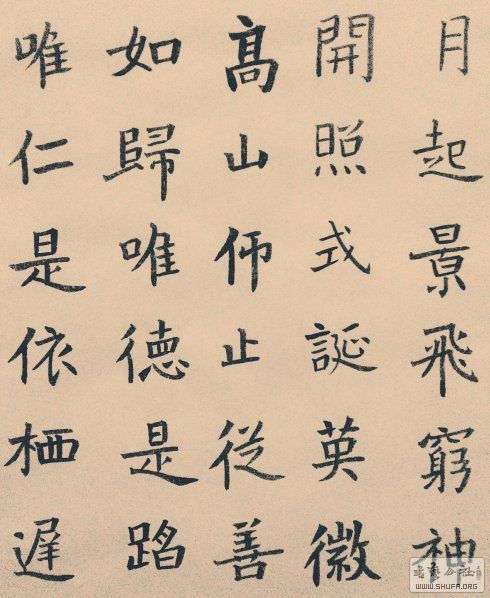 月起景飛窮神
開照式誕英徽
髙山仰止從善
如歸唯德是蹈
唯仁是依栖遲
書藝公社
WWW.SHUFA.ORG